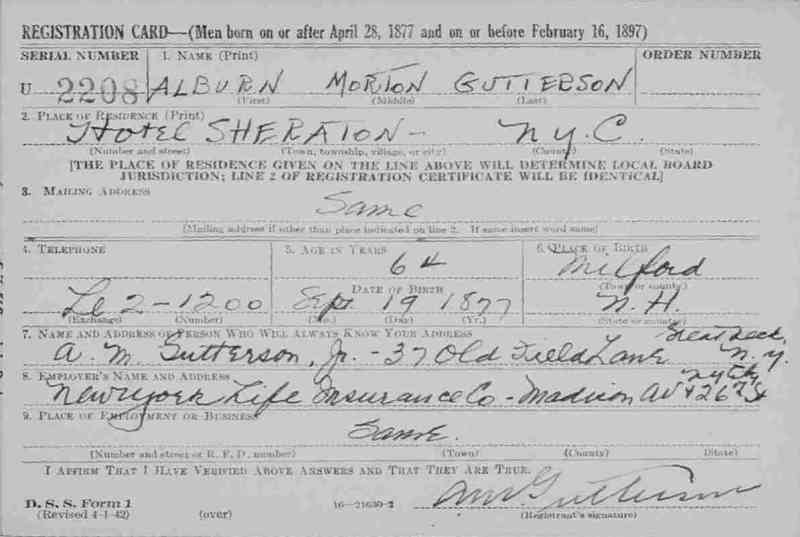 REGISTRATION CARD—(Men born on or after April 28, 1877 and on or before February 16, 1897)
SERIAL NUMBER 1. NAME (Print) ORDER NUMBER
U 2208 ALBURN MORTON GUTTERSON
(First) (Middle) (Last)
2. PLACE OF RESIDENCE (Print)
Hotel SHERATON - N.Y.C.
(Number and street) (Town, township, village, or city) (County) (State)
[THE PLACE OF RESIDENCE GIVEN ON THE LINE ABOVE WILL DETERMINE LOCAL BOARD
JURISDICTION; LINE 2 OF REGISTRATION CERTIFICATE WILL BE IDENTICAL]
3. MAILING ADDRESS
Same
[Mailing address if other than place indicated on line 2. If same insert word same]
4. TELEPHONE 5. AGE IN YEARS 6. PLACE OF BIRTH
64 Milford
DATE OF BIRTH (Town or county)
Le 2-1200 Sept. 19 1877 N.H.
(Exchange) (Number) (Mo.) (Day) (Yr.) (State or country)
7. NAME AND ADDRESS OF PERSON WHO WILL ALWAYS KNOW YOUR ADDRESS
A. M. Gutterson, Jr. - 37 Old Field Lane Great Neck, N.Y.
8. EMPLOYER'S NAME AND ADDRESS
New York Life Insurance Co - Madison Av & 26th St NY City
9. PLACE OF EMPLOYMENT OR BUSINESS
Same.
(Number and street or R. F. D. number) (Town) (County) (State)
I AFFIRM THAT I HAVE VERIFIED ABOVE ANSWERS AND THAT THEY ARE TRUE.
D. S. S. Form 1
(Revised 4-1-42) (over) 16—21630-2 AM Gutterson
(Registrant's signature)